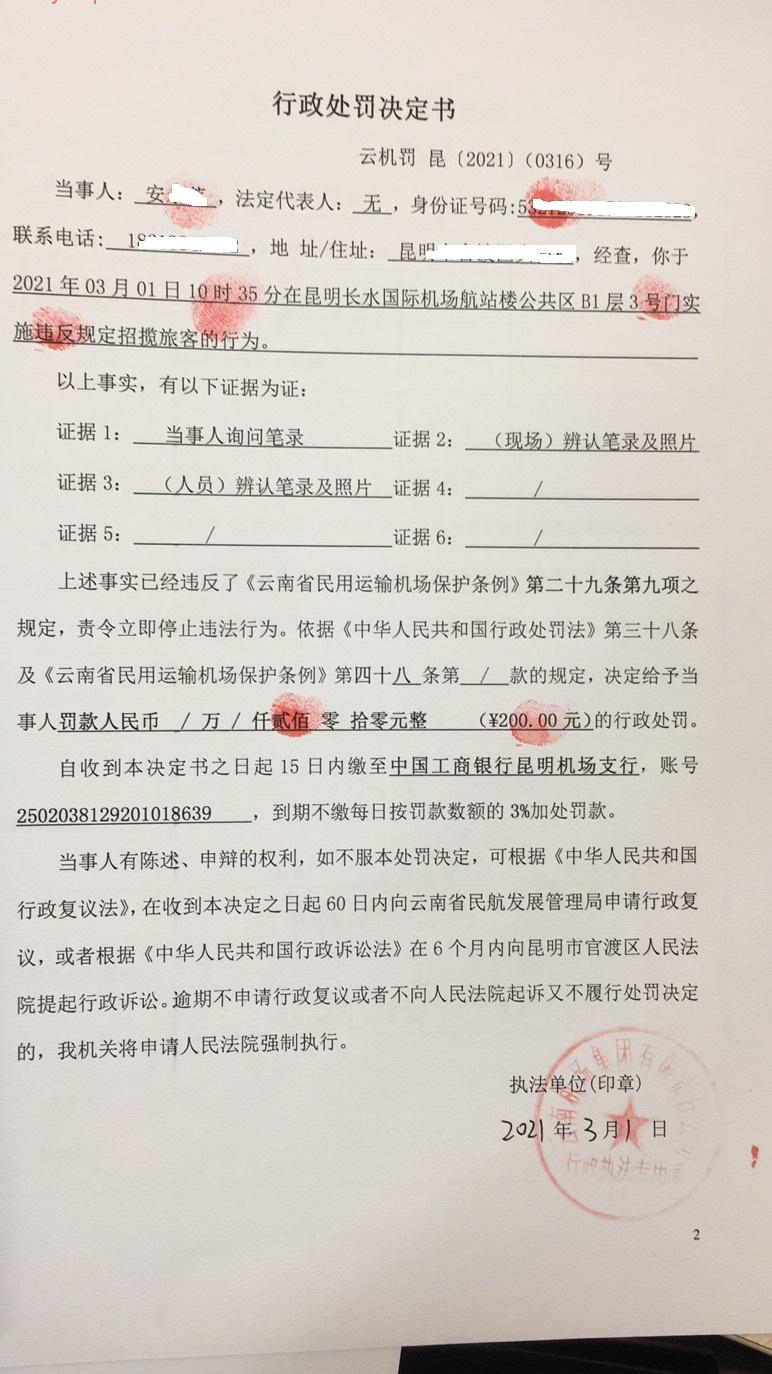 行政处罚决定书
云机罚 昆〔2021〕（0316）号
当事人： 安 ，法定代表人： 无 ，身份证号码:
联系电话: ，地 址/住址： 昆明 ，经查，你于
2021 年 03 月 01 日 10 时 35 分在昆明长水国际机场航站楼公共区 B1 层 3 号门实
施违反规定招揽旅客的行为。
以上事实，有以下证据为证：
证据 1： 当事人询问笔录 证据 2： （现场）辨认笔录及照片
证据 3： （人员）辨认笔录及照片 证据 4： /
证据 5： / 证据 6： /
上述事实已经违反了《云南省民用运输机场保护条例》第二十九条第九项之
规定，责令立即停止违法行为。依据《中华人民共和国行政处罚法》第三十八条
及《云南省民用运输机场保护条例》第四十八 条第 / 款的规定，决定给予当
事人罚款人民币 / 万 / 仟贰佰 零 拾零元整 （¥200.00 元）的行政处罚。
自收到本决定书之日起 15 日内缴至中国工商银行昆明机场支行，账号
2502038129201018639 ，到期不缴每日按罚款数额的 3%加处罚款。
当事人有陈述、申辩的权利，如不服本处罚决定，可根据《中华人民共和国
行政复议法》，在收到本决定之日起 60 日内向云南省民航发展管理局申请行政复
议，或者根据《中华人民共和国行政诉讼法》在 6 个月内向昆明市官渡区人民法
院提起行政诉讼。逾期不申请行政复议或者不向人民法院起诉又不履行处罚决定
的，我机关将申请人民法院强制执行。
执法单位(印章)
2021 年 3 月 1 日
行政执法专用章
2